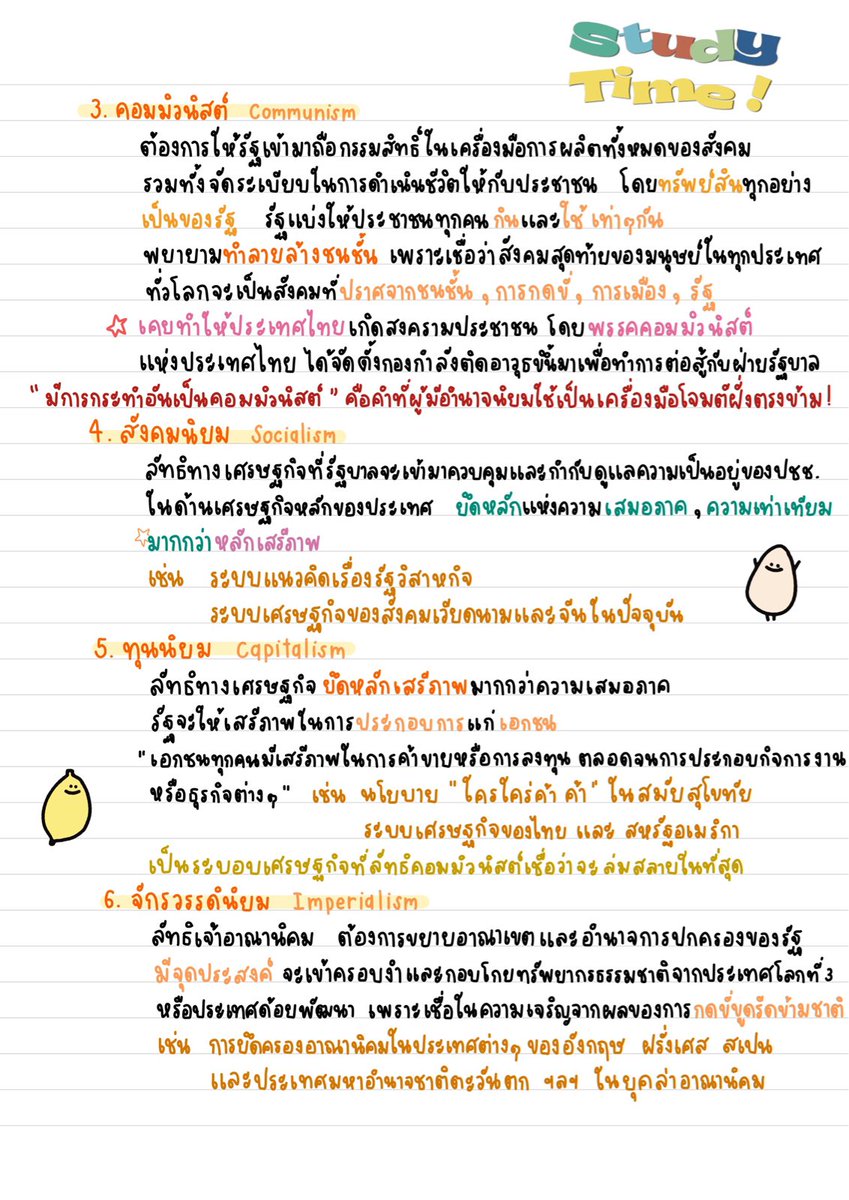 Study
Time!
3. คอมมิวนิสต์ Communism
ต้องการให้รัฐเข้ามาถือกรรมสิทธิ์ในเครื่องมือการผลิตทั้งหมดของสังคม
รวมทั้งจัดระเบียบในการดำเนินชีวิตให้กับประชาชน โดยทรัพย์สินทุกอย่าง
เป็นของรัฐ รัฐแบ่งให้ประชาชนทุกคน กินและใช้ เท่าๆกัน
พยายามทำลายล้างชนชั้น เพราะเชื่อว่าสังคมสุดท้ายของมนุษย์ในทุกประเทศ
ทั่วโลกจะเป็นสังคมที่ปราศจากชนชั้น , การกดขี่ , การเมือง , รัฐ
☆ เคยทำให้ประเทศไทยเกิดสงครามประชาชน โดยพรรคคอมมิวนิสต์
แห่งประเทศไทย ได้จัดตั้งกองกำลังติดอาวุธขึ้นมาเพื่อทำการต่อสู้กับฝ่ายรัฐบาล
" มีการกระทำอันเป็นคอมมิวนิสต์ " คือคำที่ผู้มีอำนาจนิยมใช้เป็นเครื่องมือโจมตีฝั่งตรงข้าม!
4. สังคมนิยม Socialism
ลัทธิทางเศรษฐกิจที่รัฐบาลจะเข้ามาควบคุมและกำกับดูแลความเป็นอยู่ของปชช.
ในด้านเศรษฐกิจหลักของประเทศ ยึดหลักแห่งความเสมอภาค , ความเท่าเทียม
☆มากกว่าหลักเสรีภาพ
เช่น ระบบแนวคิดเรื่องรัฐวิสาหกิจ
ระบบเศรษฐกิจของสังคมเวียดนามและจีนในปัจจุบัน
5. ทุนนิยม Capitalism
ลัทธิทางเศรษฐกิจ ยึดหลักเสรีภาพมากกว่าความเสมอภาค
รัฐจะให้เสรีภาพในการประกอบการแก่เอกชน
"เอกชนทุกคนมีเสรีภาพในการค้าขายหรือการลงทุน ตลอดจนการประกอบกิจการงาน
หรือธุรกิจต่างๆ" เช่น นโยบาย "ใครใคร่ค้า ค้า" ในสมัยสุโขทัย
ระบบเศรษฐกิจของไทย และ สหรัฐอเมริกา
เป็นระบอบเศรษฐกิจที่ลัทธิคอมมิวนิสต์เชื่อว่าจะล่มสลายในที่สุด
6. จักรวรรดินิยม Imperialism
ลัทธิเจ้าอาณานิคม ต้องการขยายอาณาเขตและอำนาจการปกครองของรัฐ
มีจุดประสงค์ จะเข้าครอบงำและกอบโกยทรัพยากรธรรมชาติจากประเทศโลกที่3
หรือประเทศด้อยพัฒนา เพราะเชื่อในความเจริญจากผลของการกดขี่ขูดรีดข้ามชาติ
เช่น การยึดครองอาณานิคมในประเทศต่างๆของอังกฤษ ฝรั่งเศส สเปน
และประเทศมหาอำนาจชาติตะวันตก ฯลฯ ในยุคล่าอาณานิคม